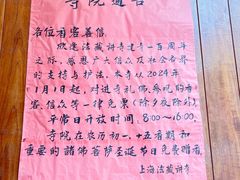 寺院通告
各位有客善信:
欣逢法藏讲寺建寺一百周年
之际,感恩广大信众及社会各界
的支持与护法。本寺从2024年
1月1日起,对进寺礼佛、参观的有
客、信众等一律免票(除夕夜除外)
平常日开放时间:8:00~16:00。
寺院在农历初一、十五香期和
重要的诸佛菩萨圣诞节日免费赠香。
上海法藏讲寺